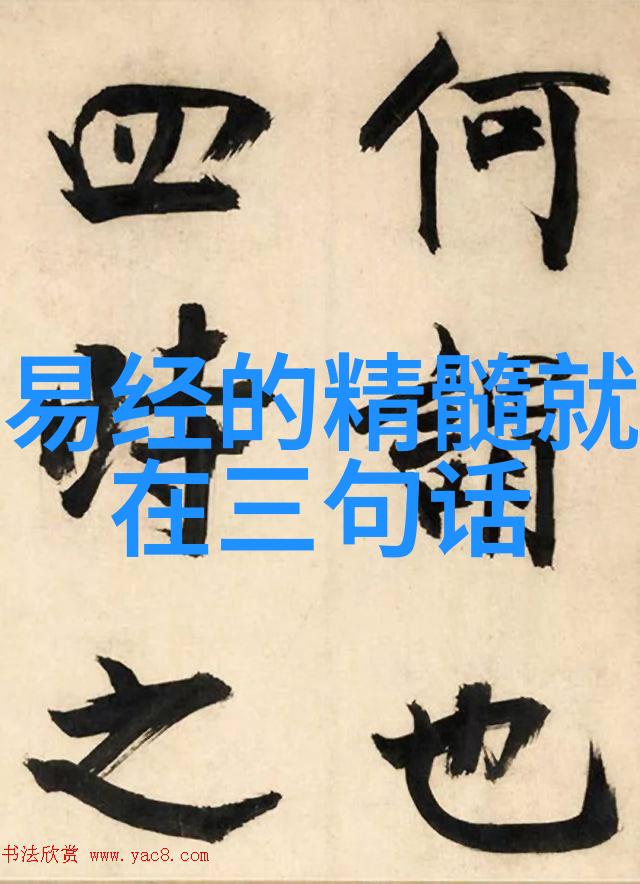 何謂也
四時之
易经的精髓就
在三句话
书法欣赏 www.yac8.com